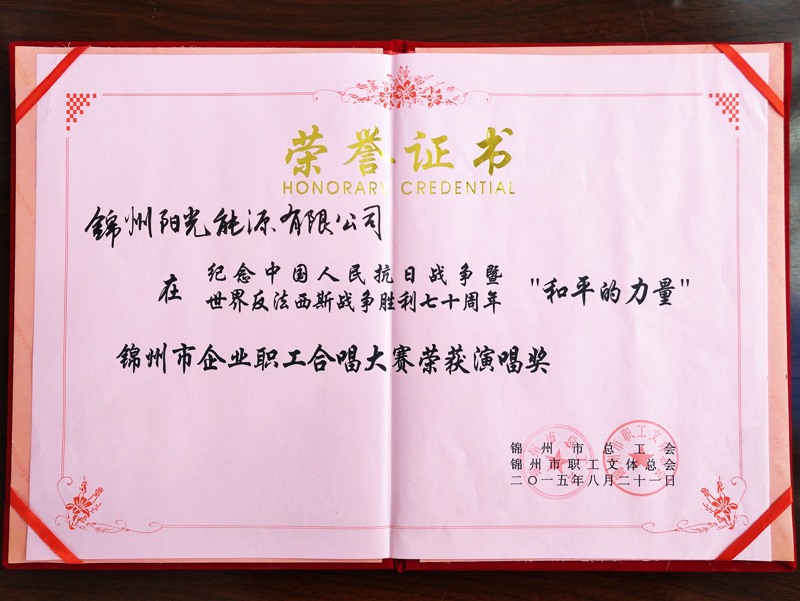 荣誉证书
HONORARY CREDENTIAL
錦州阳光能源有限公司
在 纪念中国人民抗日战争暨
世界反法西斯战争胜利七十周年 "和平的力量"
锦州市企业职工合唱大赛荣获演唱奖
锦州市总工会
锦州市职工文体总会
二〇一五年八月二十一日